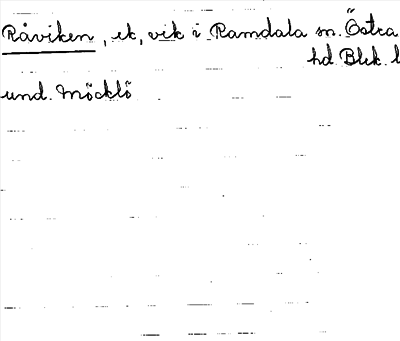 Råviken, ek, vik i Ramdala sn. Östra
hd Blek. l
und. Möcklö